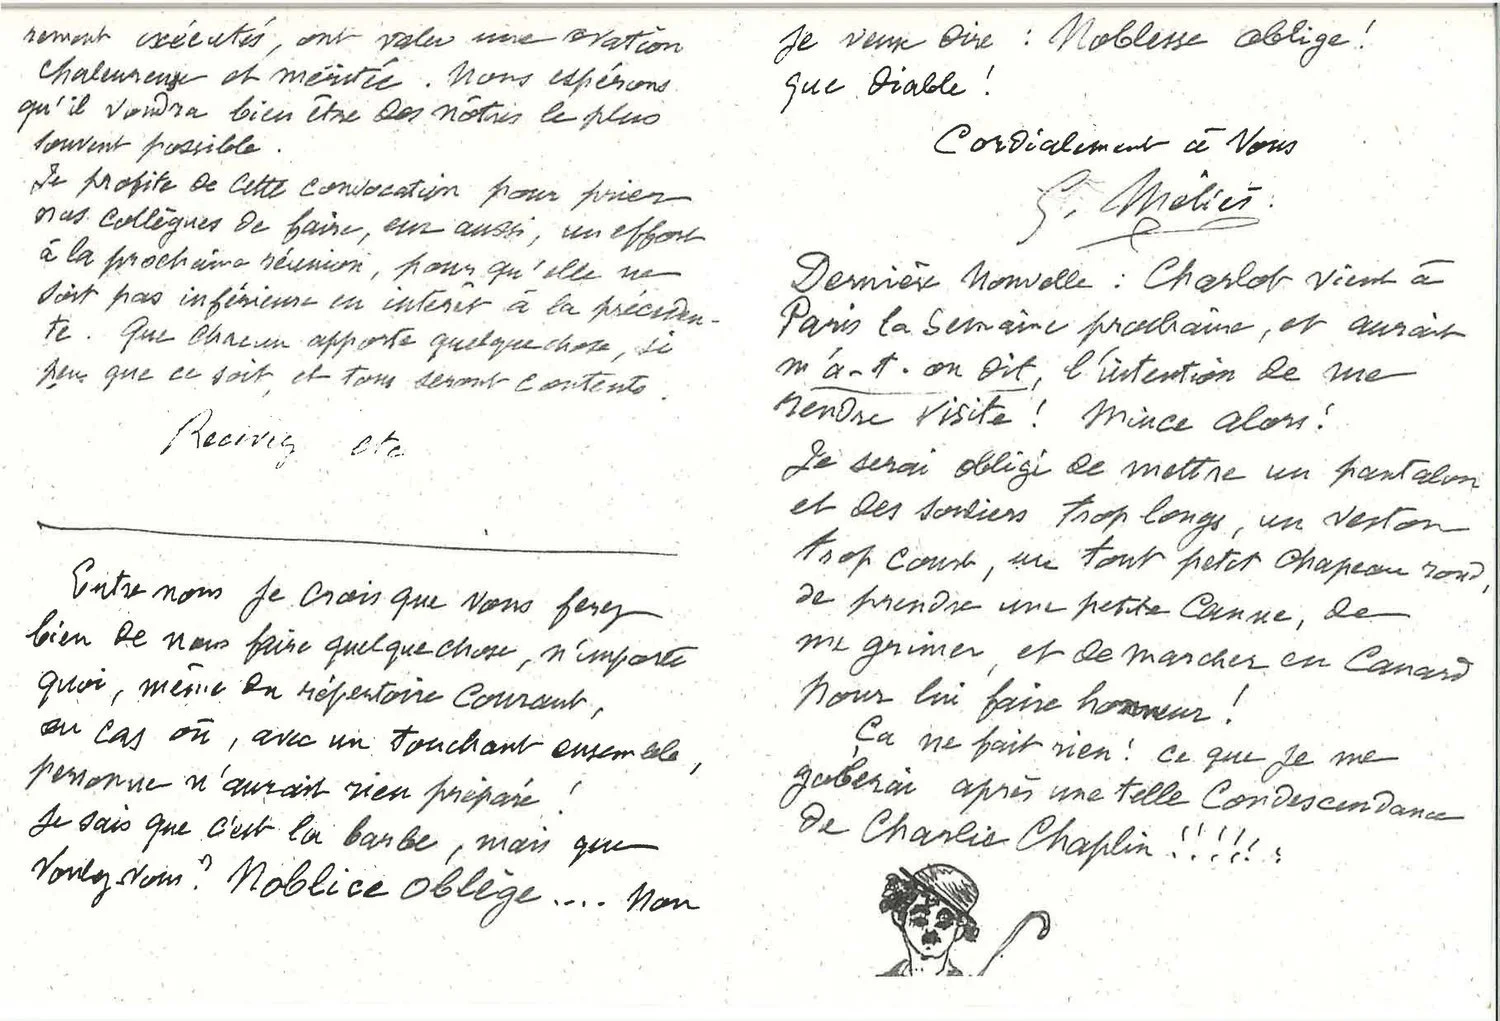 rement exécutés, ont valu une ovation
chaleureuse et méritée. Nous espérons
qu'il voudra bien être des nôtres le plus
souvent possible.
Je profite de cette convocation pour prier
nos collègues de faire, eux aussi, un effort
à la prochaine réunion, pour qu'elle ne
soit pas inférieure en intérêt à la précéden-
te. Que chacun apporte quelque chose, si
peu que ce soit, et tous seront contents.
Recevez etc
Entre nous je crois que vous ferez
bien de nous faire quelque chose, n'importe
quoi, même du répertoire courant,
au cas où, avec un touchant ensemble,
personne n'aurait rien préparé!
Je sais que c'est la barbe, mais que
voulez-vous? Noblice oblège .... Non
je veux dire : Noblesse oblige!
que diable!
Cordialement à Vous
G. Méliès.
Dernière Nouvelle : Charlot vient à
Paris la Semaine prochaine, et aurait
m'a-t-on dit, l'intention de me
rendre visite! Mince alors!
Je serai obligé de mettre un pantalon
et des souliers trop longs, un veston
trop court, un tout petit chapeau rond,
de prendre une petite Canne, de
me grimer, et de marcher en Canard
pour lui faire honneur!
Ça ne fait rien! ce que je me
goberai après une telle Condescendance
de Charlie Chaplin !!!!!